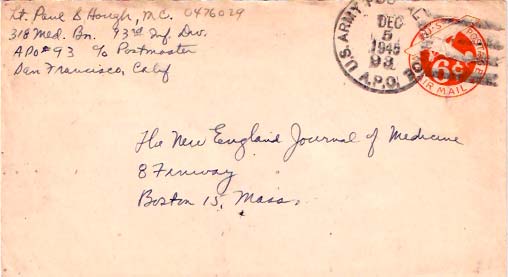 Lt. Paul B Hough, M.C. 0476029
318 Med. Bn. 93rd Inf. Div.
APO #93 c/o Postmaster
San Francisco, Calif
U.S. ARMY POSTAL
DEC
5
1945
93
A.P.O.
6¢
AIR MAIL
The New England Journal of Medicine
8 Fenway
Boston 15, Mass.